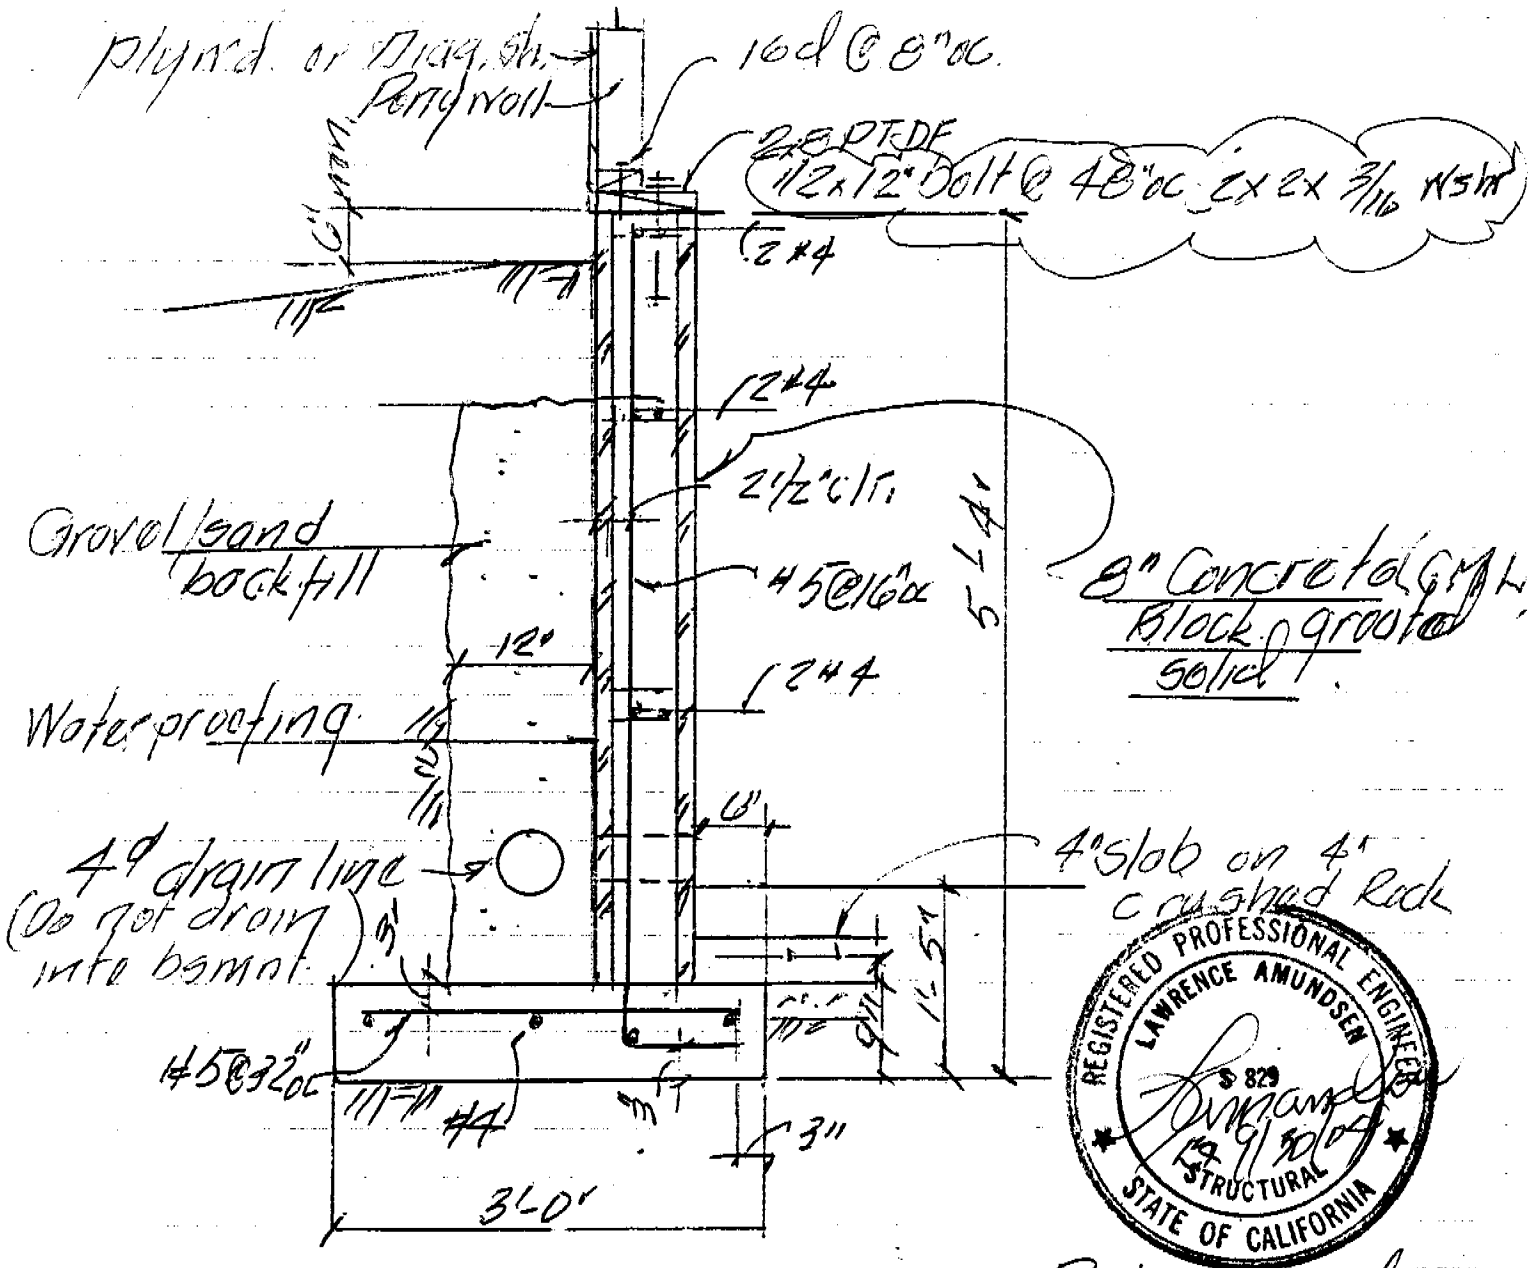 plywd. or Diag. sh.
Pony wall
16d @ 8"oc.
2x8 PTDF
1/2 x 12" bolt @ 48"oc 2x2x 3/16 wshr
6" min.
2 #4
2 #4
2 1/2" clr.
Gravel/sand
backfill
#5@16"oc
5'-4"
8" Concrete
Block grouted
solid
12"
2 #4
Waterproofing
6"
4"ø drain line
(Do not drain
into bsmnt.
4" Slab on 4"
crushed Rock
3"
1'-5"
#5@32"oc
#4
3"
3"
3'-0"
REGISTERED PROFESSIONAL ENGINEER
LAWRENCE AMUNDSEN
S 829
9/30/04
STRUCTURAL
STATE OF CALIFORNIA